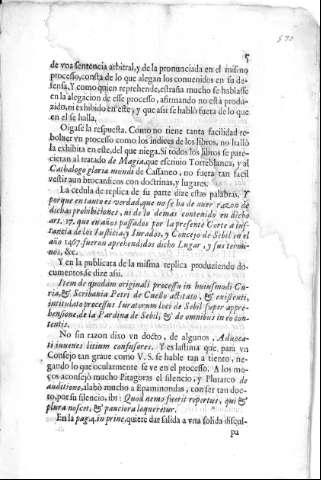 5
de vna sentencia arbitral, y de la pronunciada en el mismo
processo, consta de lo que alegan los conuenidos en su defensa,
Y como quien reprehende, estraña mucho se hablasse
en la alegacion de esse processo, afirmando no està produzido,
ni exhibido en este, y que assi se hablò fuera de lo que
en el se halla.
Oigase la respuesta. Como no tiene tanta facilidad rebolaer
vn processo como los indices de los libros, no hallò
la exhibita en este, del que niega. Si todos los libros se parecieran
al tratado de Magia, que escriuio Torreblanca, y al
Cathalogo gloria mundi de Cassaneo, no fuera tan facil
vestir aun brocardicos con doctrinas, y lugares.
La cedula de replica de su parte dize estas palabras, Y
porque en tanto es verdad, que no se ha de auer razon de
dichas prohibiciones, ni de lo demas contenido en dicho
art. 37. que en años passados por la presente Corte a instancia
de los Iusticia, y Iurados, y Concejo de Sebil en el
año 1467. fueron aprehendidos dicho Lugar, y sus terminos,
&c.
Y en la publicata de la misma replica produziendo documentos
se dize assi.
Item de quodam originali processu in huiusmodi Curia,
& Scribania Petri de Cuello actitato, & existenti,
intitulato processus Iuratorum loci de Sebil super apprehensione,
de la Pardina de Sebil, & de omnibus in eo contentis.
No sin razon dixo vn docto, de algunos, Aduocati
iuuenes litium confusores. Y es lastima que, para vn
Consejo tan graue como V. S. se hable tan a tiento, negando
lo que iocularmente se ve en el processo. A los moços
aconsejò mucho Pitagoras el silencio, y Plutarco de
auditione, alabò mucho a Epaminondas, con ser tan docto,
por su silencio, ibi: Quod nemo fuerit repertus, qui &
plura nosset, & pauciora loqueretur.
En la pag. 4. in princ. quiere dar salida a vna solida disculpa